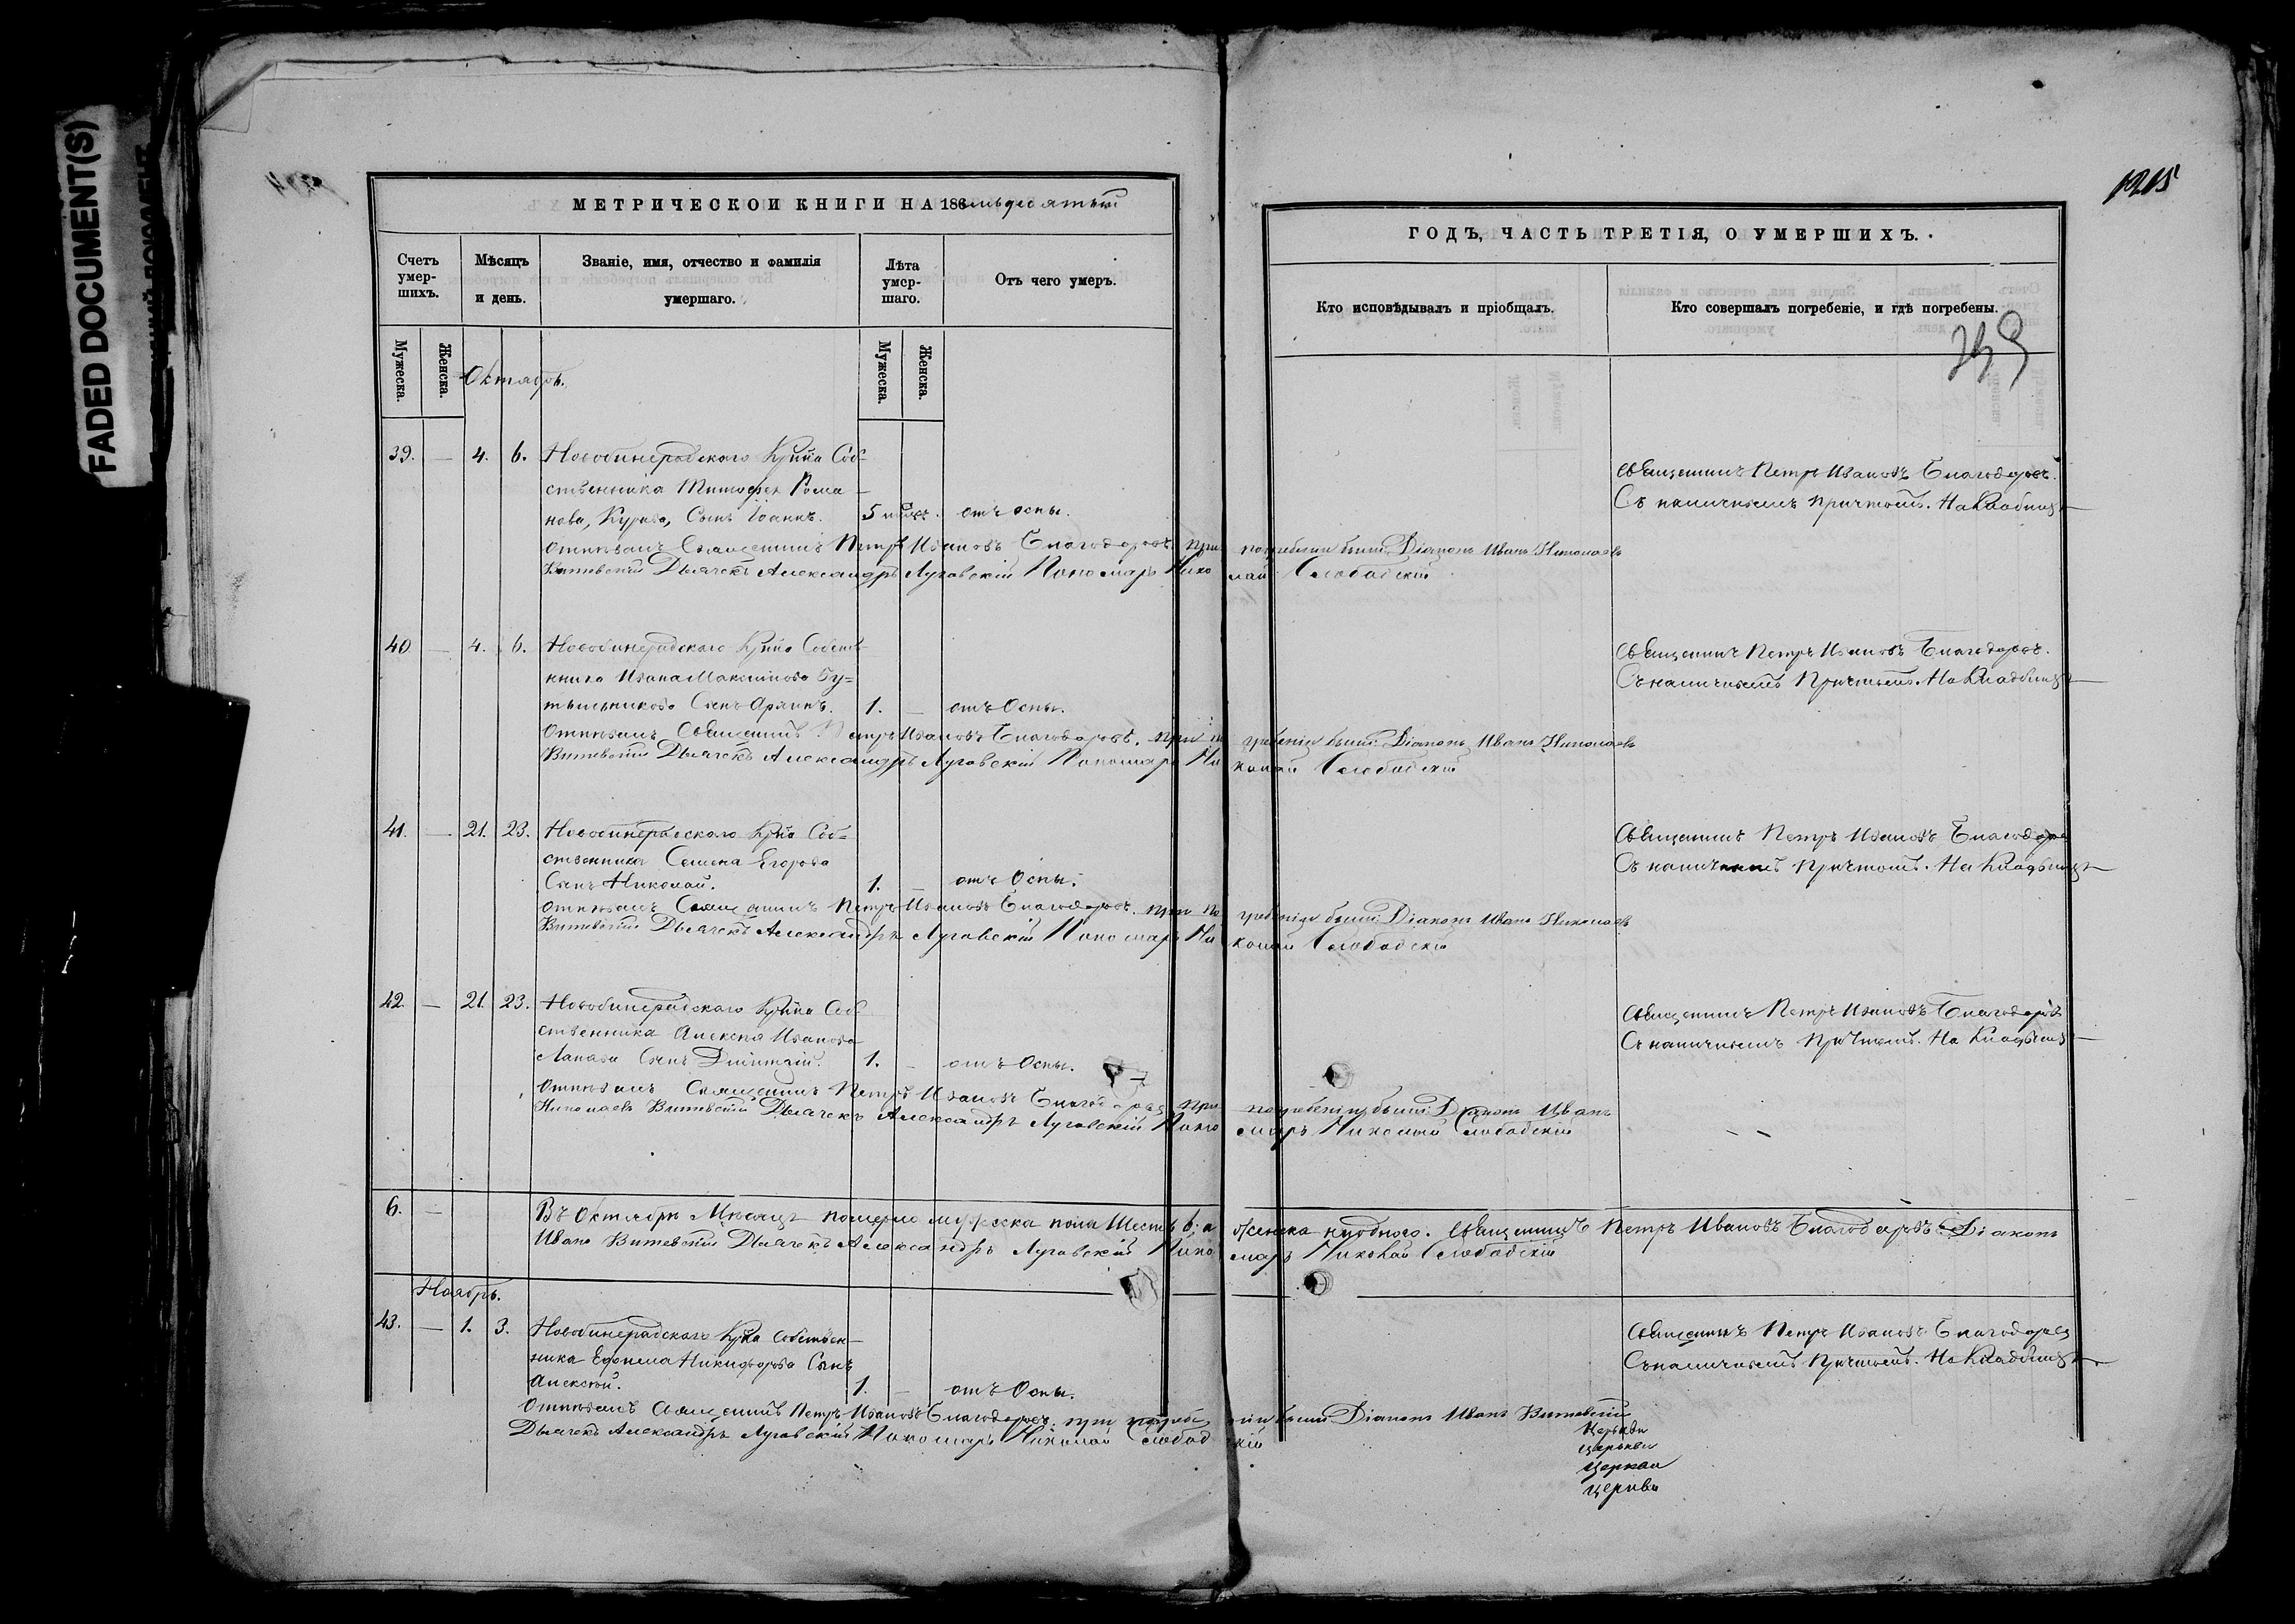 FADED DOCUMENT(S)
1215
МЕТРИЧЕСКОИ КНИГИ НА 186
ГОДЪ, ЧАСТЬ ТРЕТІЯ, О УМЕРШИХЪ.
Счетъ умер-шихъ.
Мѣсяцъ и день.
Званіе, имя, отчество и фамилія умершаго.
Лѣта умер-шаго.
Отъ чего умеръ.
Кто исповѣдывалъ и пріобщалъ.
Кто совершалъ погребеніе, и гдѣ погребены.
Мужеска.
Женска.
Мужеска.
Женска.
Октябрь.
39. — 4. 6.
Священникъ Петръ Ивановъ Благодаровъ.
ственника Тимофея Рома-
Съ наличнымъ причтомъ. На Кладбищѣ
нова, Курова, Сынъ Іоаннъ. 5 отъ оспы.
Отпѣвалъ Священникъ Петръ Ивановъ Благодаровъ. при погребеніи были: Діаконъ Иванъ Николаевъ
Витевскій Дьячекъ Александръ Луговскій Пономарь Николай Слободскій
40 — 4. 6.
Священникъ Петръ Ивановъ Благодаровъ.
нника Ивана Максимова Бу=
Съ наличнымъ Причтомъ. На Кладбищѣ
Сынъ 1. — отъ Оспы.
Отпѣвалъ Священникъ Петръ Ивановъ Благодаровъ. при погребеніи были: Діаконъ Иванъ Николаевъ
Витевскій Дьячекъ Александръ Луговскій Пономарь Николай Слободскій
41. — 21. 23. Соб=
Священникъ Петръ Ивановъ
ственника Семена Егорова
Съ наличнымъ Причтомъ. На Кладбищѣ
Сынъ Николай. 1. — отъ Оспы.
Отпѣвалъ Священникъ Петръ Ивановъ Благодаровъ. при погребеніи были: Діаконъ Иванъ Николаевъ
Витевскій Дьячекъ Александръ Луговскій Пономарь Николай Слободскій
42. — 21. 23.
Священникъ Петръ Ивановъ Благодаровъ
ственника Алексея Иванова
Съ наличнымъ Причтомъ. На Кладбищѣ
Лапаева Сынъ Димитрій. 1. — отъ Оспы.
Отпѣвалъ Священникъ Петръ Ивановъ при погребеніи были: Діаконъ Иванъ
Николаевъ Витевскій Дьячекъ Александръ Луговскій Пономарь Николай Слободскій
6. — Въ Октябрѣ Мѣсяцѣ померло мужеска пола Шесть 6; а женска ниодного. Священникъ Петръ Ивановъ Благодаровъ Діаконъ
Иванъ Витевскій Дьячекъ Александръ Луговскій Пономарь Николай Слободскій
Ноябрь.
43. — 1. 3. Собствен-
Священникъ Петръ Ивановъ
ника Ефима Никифорова Сынъ
Съ наличнымъ Причтомъ. На Кладбищѣ
Алексѣй. 1. — отъ Оспы.
Отпѣвалъ Священникъ Петръ Ивановъ Благодаровъ. при погребеніи были Діаконъ Иванъ Витевскій
Дьячекъ Александръ Луговскій Пономарь Николай Слободскій
Церкви
Церкви
Церкви
Церкви